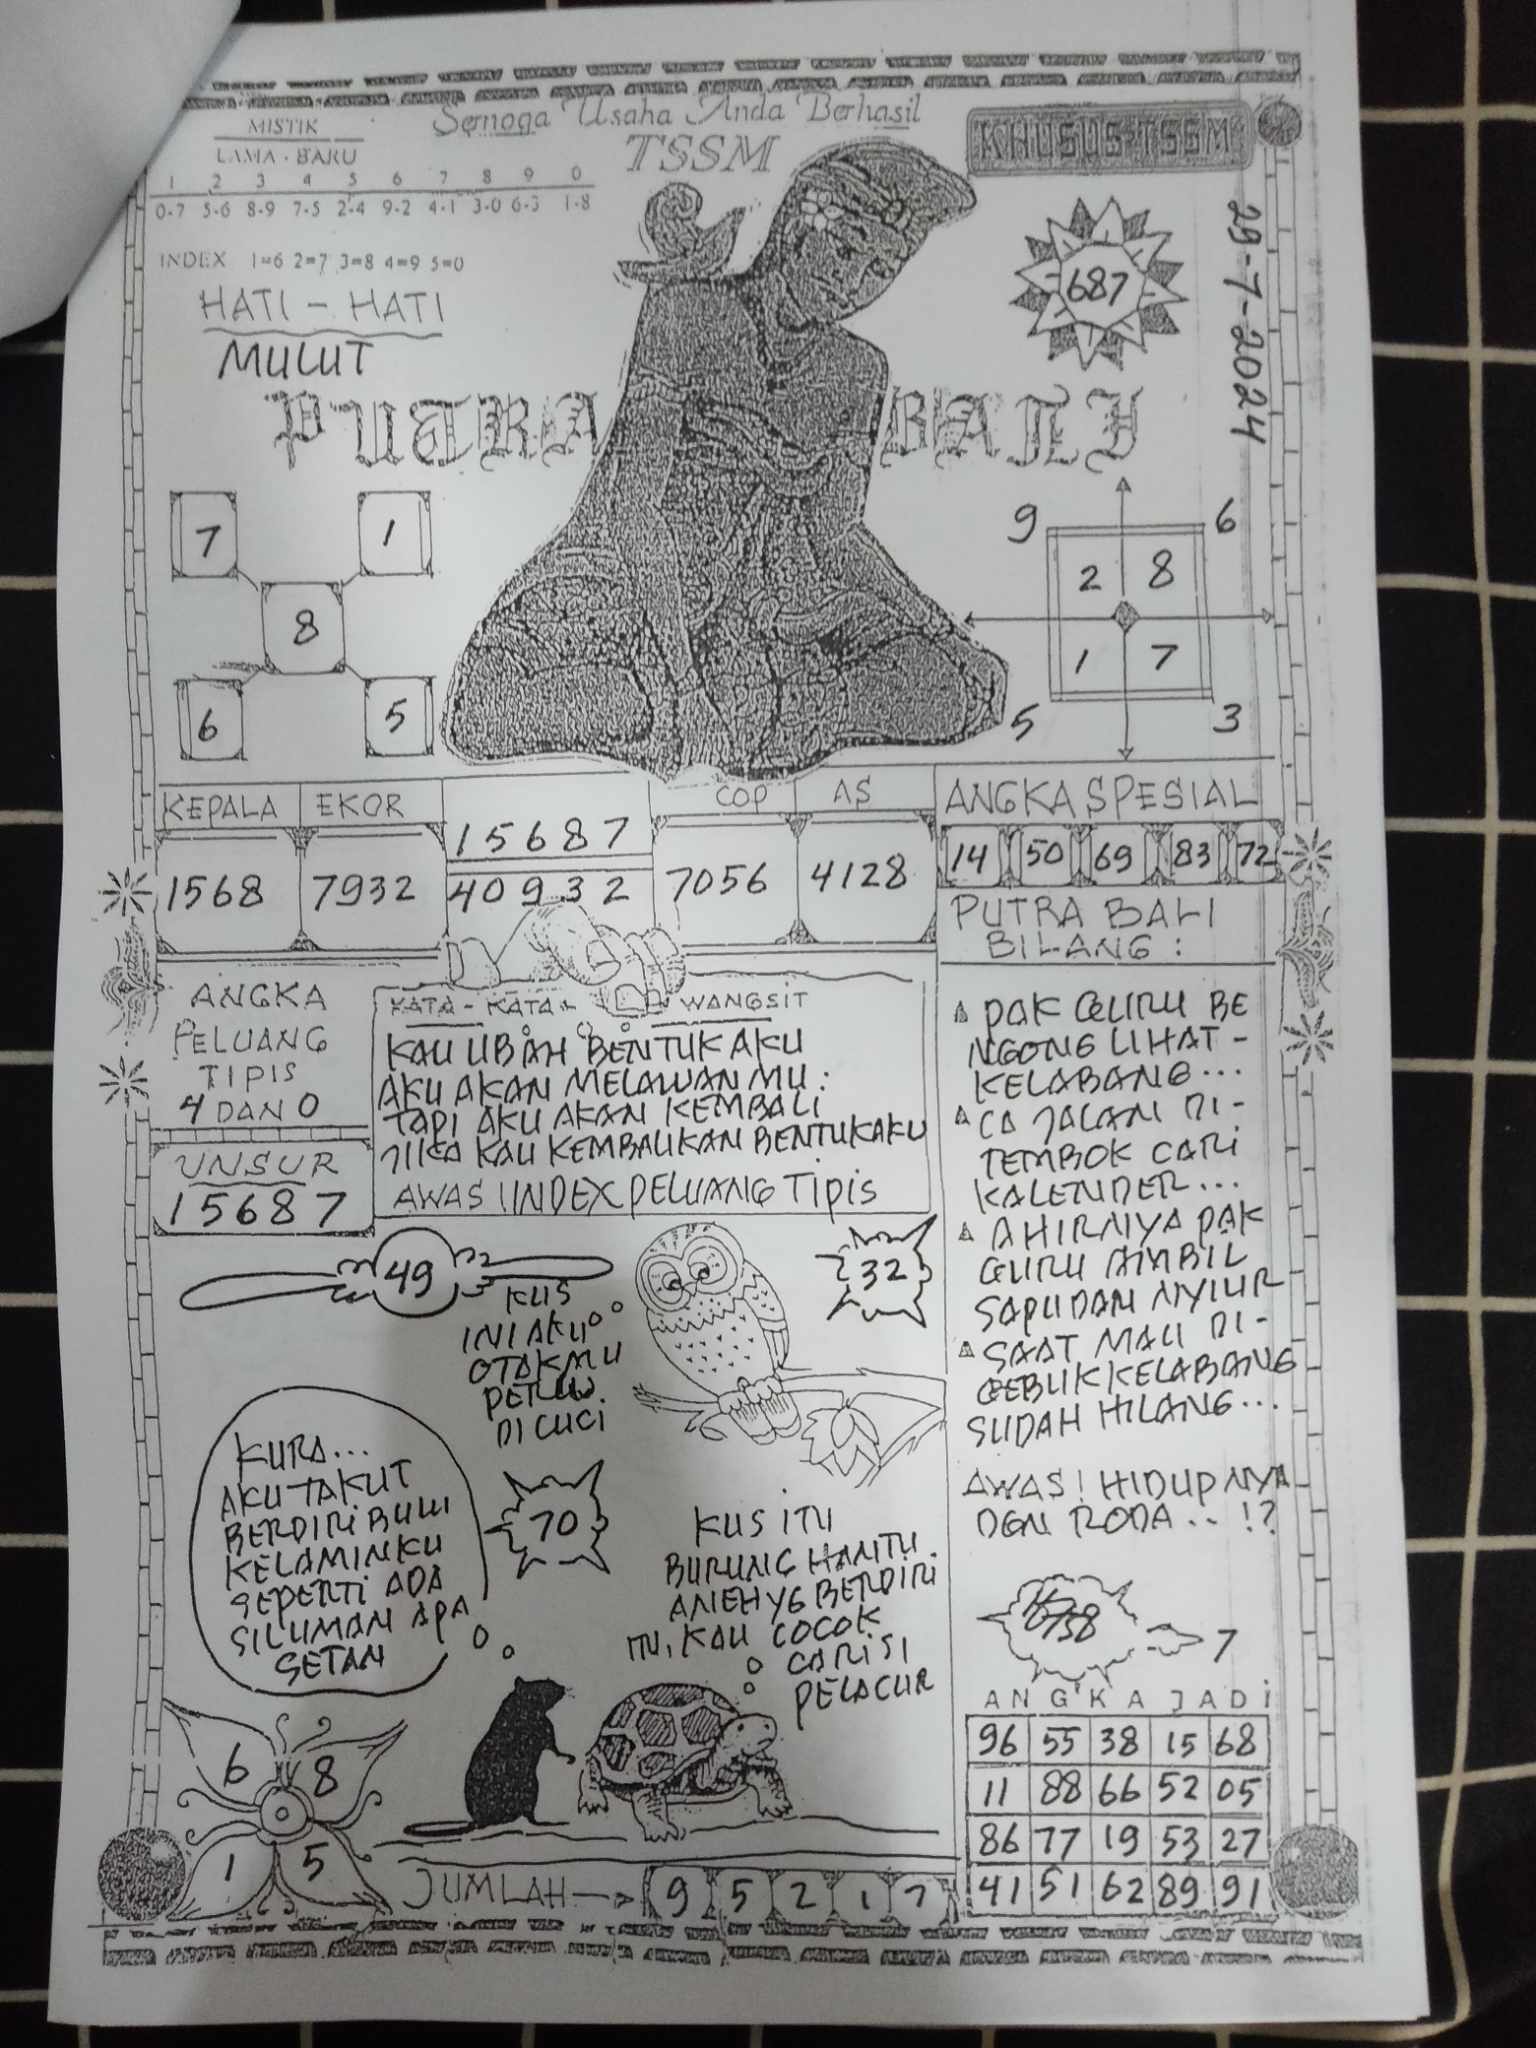 Semoga Usaha Anda Berhasil
TSSM
KHUSUS TSSM
MISTIK
LAMA - BARU
1 2 3 4 5 6 7 8 9 0
0-7 5-6 8-9 7-5 2-4 9-2 4-1 3-0 6-3 1-8
INDEX 1=6 2=7 3=8 4=9 5=0
HATI - HATI
MULUT
PUTRA BALI
687
29-7-2024
7 1
8
6 5
9 6
2 8
1 7
5 3
KEPALA EKOR COP AS
1568 7932 15687 7056 4128
40932
ANGKA SPESIAL
14 50 69 83 72
PUTRA BALI
BILANG :
PAK GURU BE
NGONG LIHAT -
KELABANG...
CA JALAN DI-
TEMBOK CARI
KALENDER...
AHIRNYA PAK
GURU AMBIL
SAPU DAN NYIUR
SAAT MAU DI-
GEBUK KELABANG
SUDAH HILANG...
AWAS! HIDUPNYA
DGN RODA .. !?
ANGKA
PELUANG
TIPIS
4 DAN 0
UNSUR
15687
KATA - KATA - WANGSIT
KAU UBAH BENTUK AKU
AKU AKAN MELAWAN MU :
TAPI AKU AKAN KEMBALI
JIKA KAU KEMBALIKAN BENTUKAKU
AWAS ! INDEX PELUANG TIPIS
49
32
KUS
INI AKU
OTAKMU
PERLU
DI CUCI
KURA...
AKU TAKUT
BERDIRI BULU
KELAMINKU
SEPERTI ADA
SILUMAN APA
SETAN
70
KUS ITU
BURUNG HANTU
ANEH YG BERDIRI
ITU, KAU COCOK
CARI SI
PELACUR
7
ANGKA JADI
96 55 38 15 68
11 88 66 52 05
86 77 19 53 27
41 51 62 89 91
6 8
1 5
JUMLAH 9 5 2 1 7